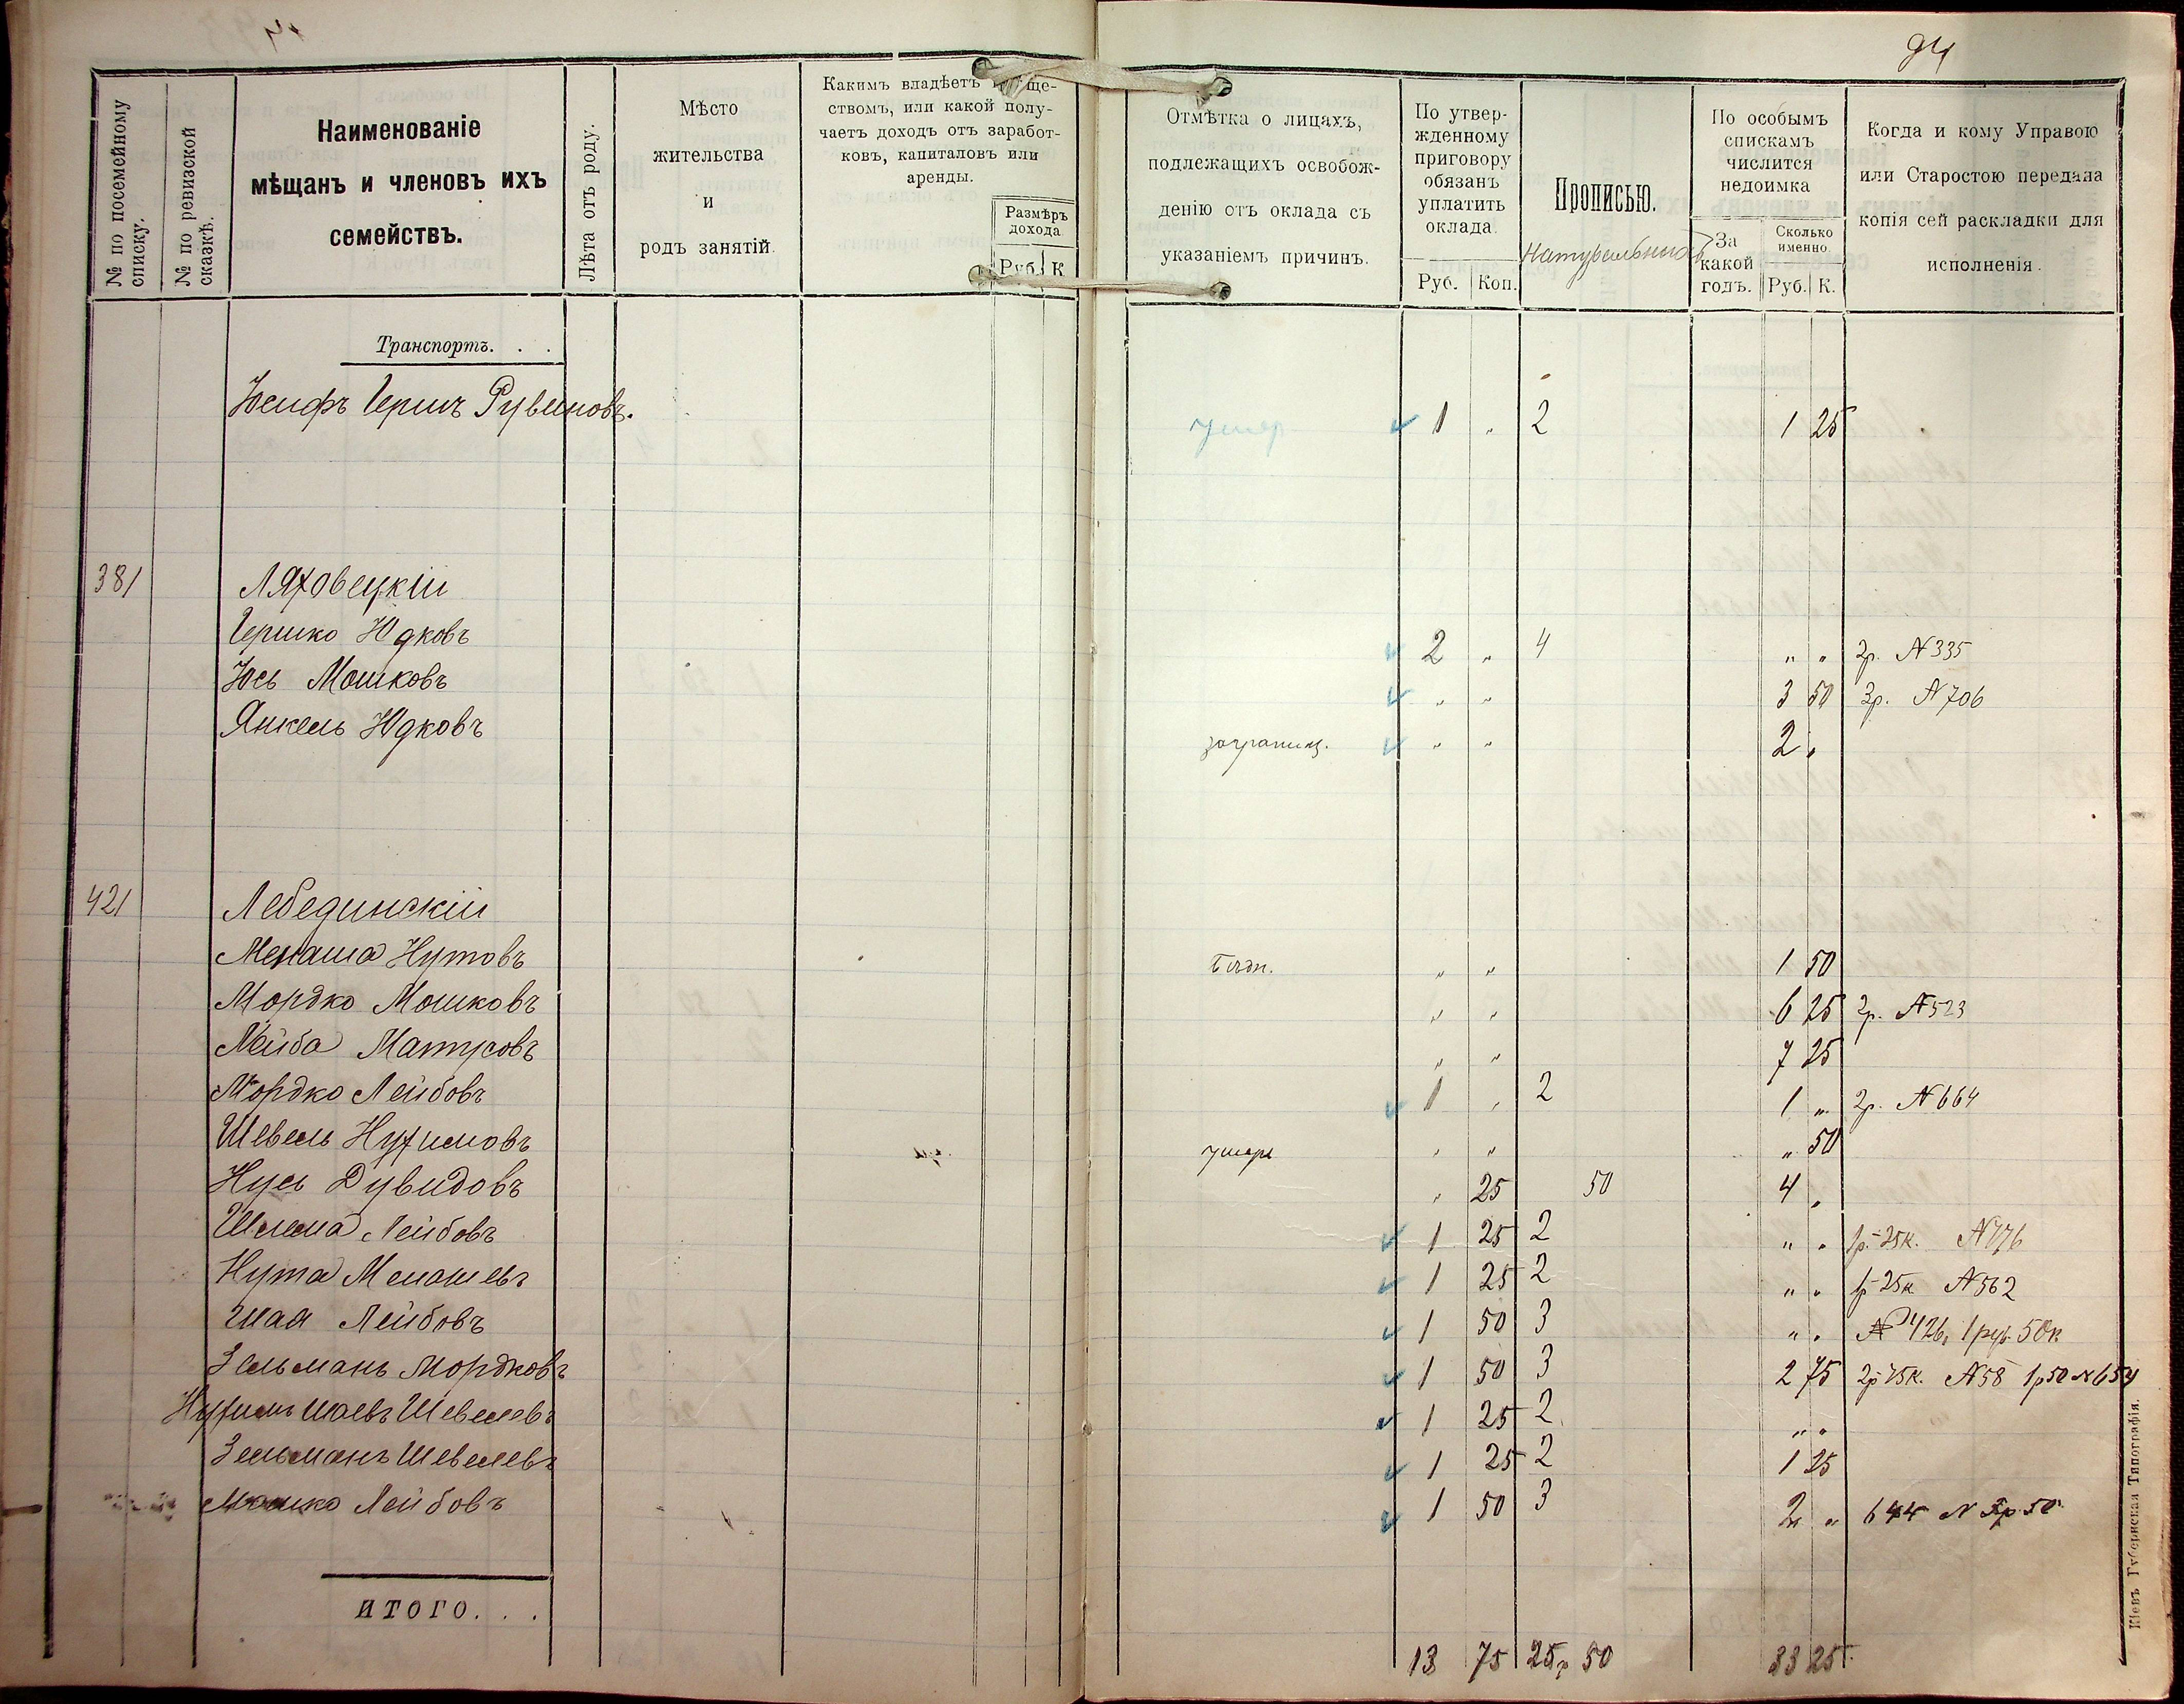 94
№ по посемейному списку.
№ по ревизской сказкѣ.
Наименованіе
мѣщанъ и членовъ ихъ
семействъ.
Лѣта отъ роду.
Мѣсто
жительства
и
родъ занятій.
Какимъ владѣетъ
ствомъ, или какой полу-
чаетъ доходъ отъ заработ-
ковъ, капиталовъ или
аренды.
Размѣръ
дохода
Руб. К.
Отмѣтка о лицахъ,
подлежащихъ освобож-
денію отъ оклада съ
указаніемъ причинъ.
По утвер-
жденному
приговору
обязанъ
уплатить
оклада.
Руб. Коп.
Прописью.
По особымъ
спискамъ
числится
недоимка
За
какой
годъ.
Сколько
именно.
Руб. К.
Когда и кому Управою
или Старостою передана
копія сей раскладки для
исполненія.
Транспортъ. . .
Іосифъ Гершъ Рувиновъ. умер 1 „ 2 1 25
381 Ляховецкій
Гершко Юдковъ 2 „ 4 „ „ 2р. №335
Іось Мошковъ „ „ 3 50 3р. №706
Янкель Юдковъ заграниц. „ „ 2 „
421 Лебединскій
Менаша Нутовъ бѣдн. „ „ 1 50
Мордко Мошковъ „ „ 6 25 2р. №523
Лейба „ „ 7 25
Мордко Лейбовъ 1 „ 2 1 „ 2р. №664
Шевель Нухимовъ умеръ „ „ „ 50
Нусь Дувидовъ „ 25 50 4 „
Шлема Лейбовъ 1 25 2 „ „ 1р. 25к. №776
Нута Менашевъ 1 25 2 „ „ 1р 25к №562
Шая Лейбовъ 1 50 3 „ „ № 426, 1 руб. 50к
Зельманъ Мордковъ 1 50 3 2 75 2р 75к. №58 1р50 №654
Нухимъ Шаевъ Шевелевъ 1 25 2 „ „
Зельманъ Шевелевъ 1 25 2 1 25
Мошко Лейбовъ 1 50 3 2 „ 644 №
ИТОГО. . .
13 75 25р 50 33 25
Кіевъ Губернская Типографія.